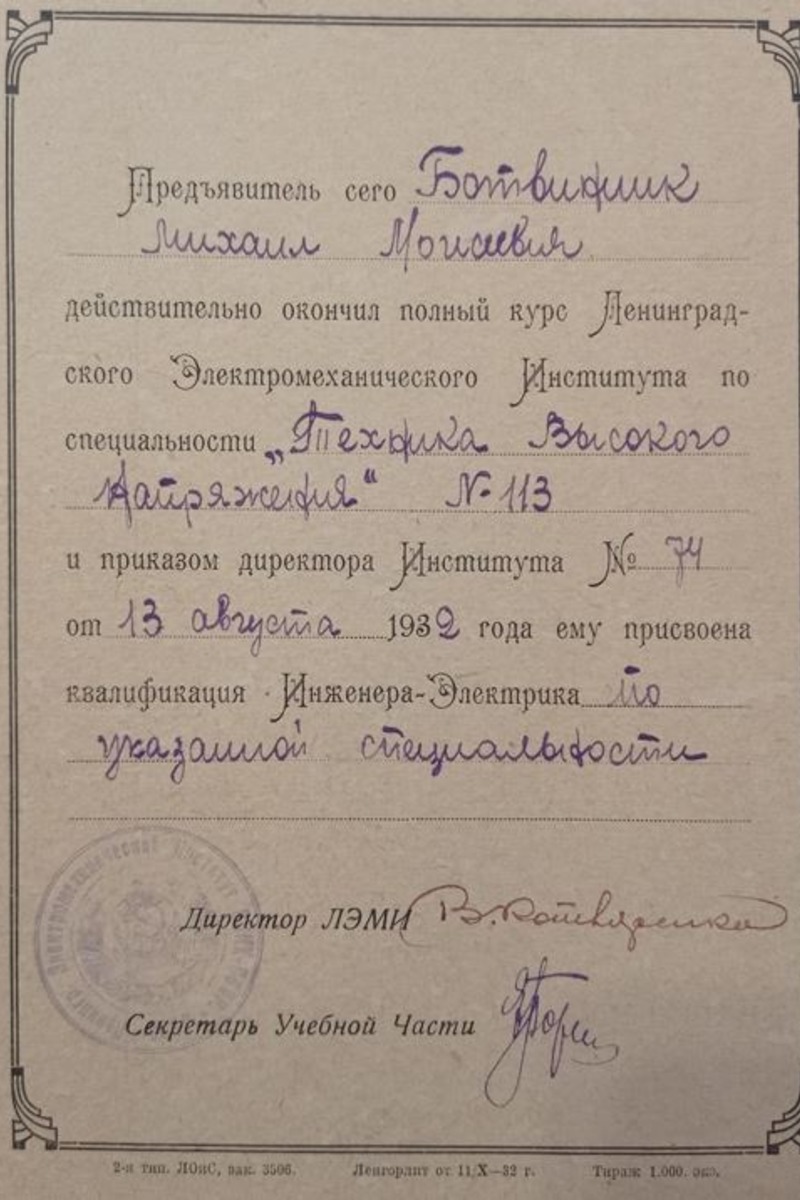 Предъявитель сего Ботвинник
Михаил Моисеевич
действительно окончил полный курс Ленинград-
ского Электромеханического Института по
специальности „Техника Высокого
Напряжения“ № 113
и приказом директора Института № 74
от 13 августа 1932 года ему присвоена
квалификация Инженера-Электрика по
указанной специальности
Директор ЛЭМИ
Секретарь Учебной Части
2-я тип. ЛОиС, зак. 3506. Ленгорлит от 11/X—32 г. Тираж 1.000. экз.